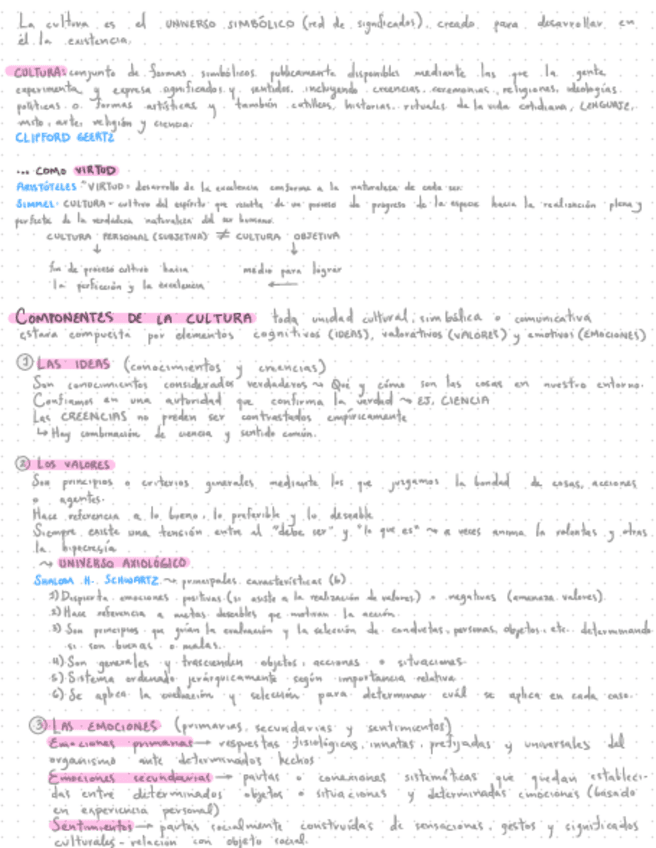 La cultura es el UNIVERSO SIMBÓLICO (red de significados) creado para desarrollar en
él la existencia.
CULTURA: conjunto de formas simbólicas publicamente disponibles mediante las que la gente
experimenta y expresa significados y sentidos, incluyendo creencias, ceremonias, religiones, ideologías
políticas o formas artísticas y también cotilleos, historias, rituales de la vida cotidiana, LENGUAJE,
arte, religión y ciencia.
CLIFFORD GEERTZ
... COMO VIRTUD
ARISTÓTELES "VIRTUD= desarrollo de la excelencia conforme a la naturaleza de cada ser.
SIMMEL: CULTURA= cultivo del espíritu que resulta de un proceso de progreso de la especie hacia la realización plena y
perfecta de la verdadera naturaleza del ser humano.
CULTURA PERSONAL (SUBJETIVA) ≠ CULTURA OBJETIVA
↓ ↓
fin de proceso cultivo hacia medio para lograr
la perfección y la excelencia ←
COMPONENTES DE LA CULTURA toda unidad cultural, simbólica o comunicativa
estará compuesta por elementos cognitivos (IDEAS), valorativos (VALORES) y emotivos (EMOCIONES)
① LAS IDEAS (conocimientos y creencias)
Son conocimientos considerados verdaderos ~> Qué y cómo son las cosas en nuestro entorno.
Confiamos en una autoridad que confirma la verdad ~> EJ. CIENCIA
Las CREENCIAS no pueden ser contrastados empíricamente
↳ Hay combinación de ciencia y sentido común.
② LOS VALORES
Son principios o criterios generales mediante los que juzgamos la bondad de cosas, acciones
o agentes.
Hace referencia a lo bueno, lo preferible y lo deseable
Siempre existe una tensión entre al "debe ser" y "lo que es" ~> a veces anima la y otras
la hipocresía
~> UNIVERSO AXIOLÓGICO
SHALOM H. SCHWARTZ ~> principales características (6)
1) Despierta emociones positivas (si asiste a la realización de valores) o negativas (amenaza valores).
2) Hace referencia a metas deseables que motivan la acción.
3) Son principios que guían la evaluación y la selección de conductas, personas, objetos, etc. determinando
si son buenas o malas.
4) Son generales y trascienden objetos, acciones o situaciones
5) Sistema ordenado jerárquicamente según importancia relativa.
6) Se aplica la evaluación y selección para determinar cuál se aplica en cada caso.
③ LAS EMOCIONES (primarias, secundarias y sentimientos)
Emociones primarias → respuestas fisiológicas, innatas, prefijadas y universales del
organismo ante determinados hechos
Emociones secundarias → pautas o conexiones sistemáticas que quedan estableci-
das entre determinados objetos o situaciones y determinadas emociones (basado
en experiencia personal)
Sentimientos → pautas socialmente construidas de sensaciones, gestos y significados
culturales - relación con objeto social.